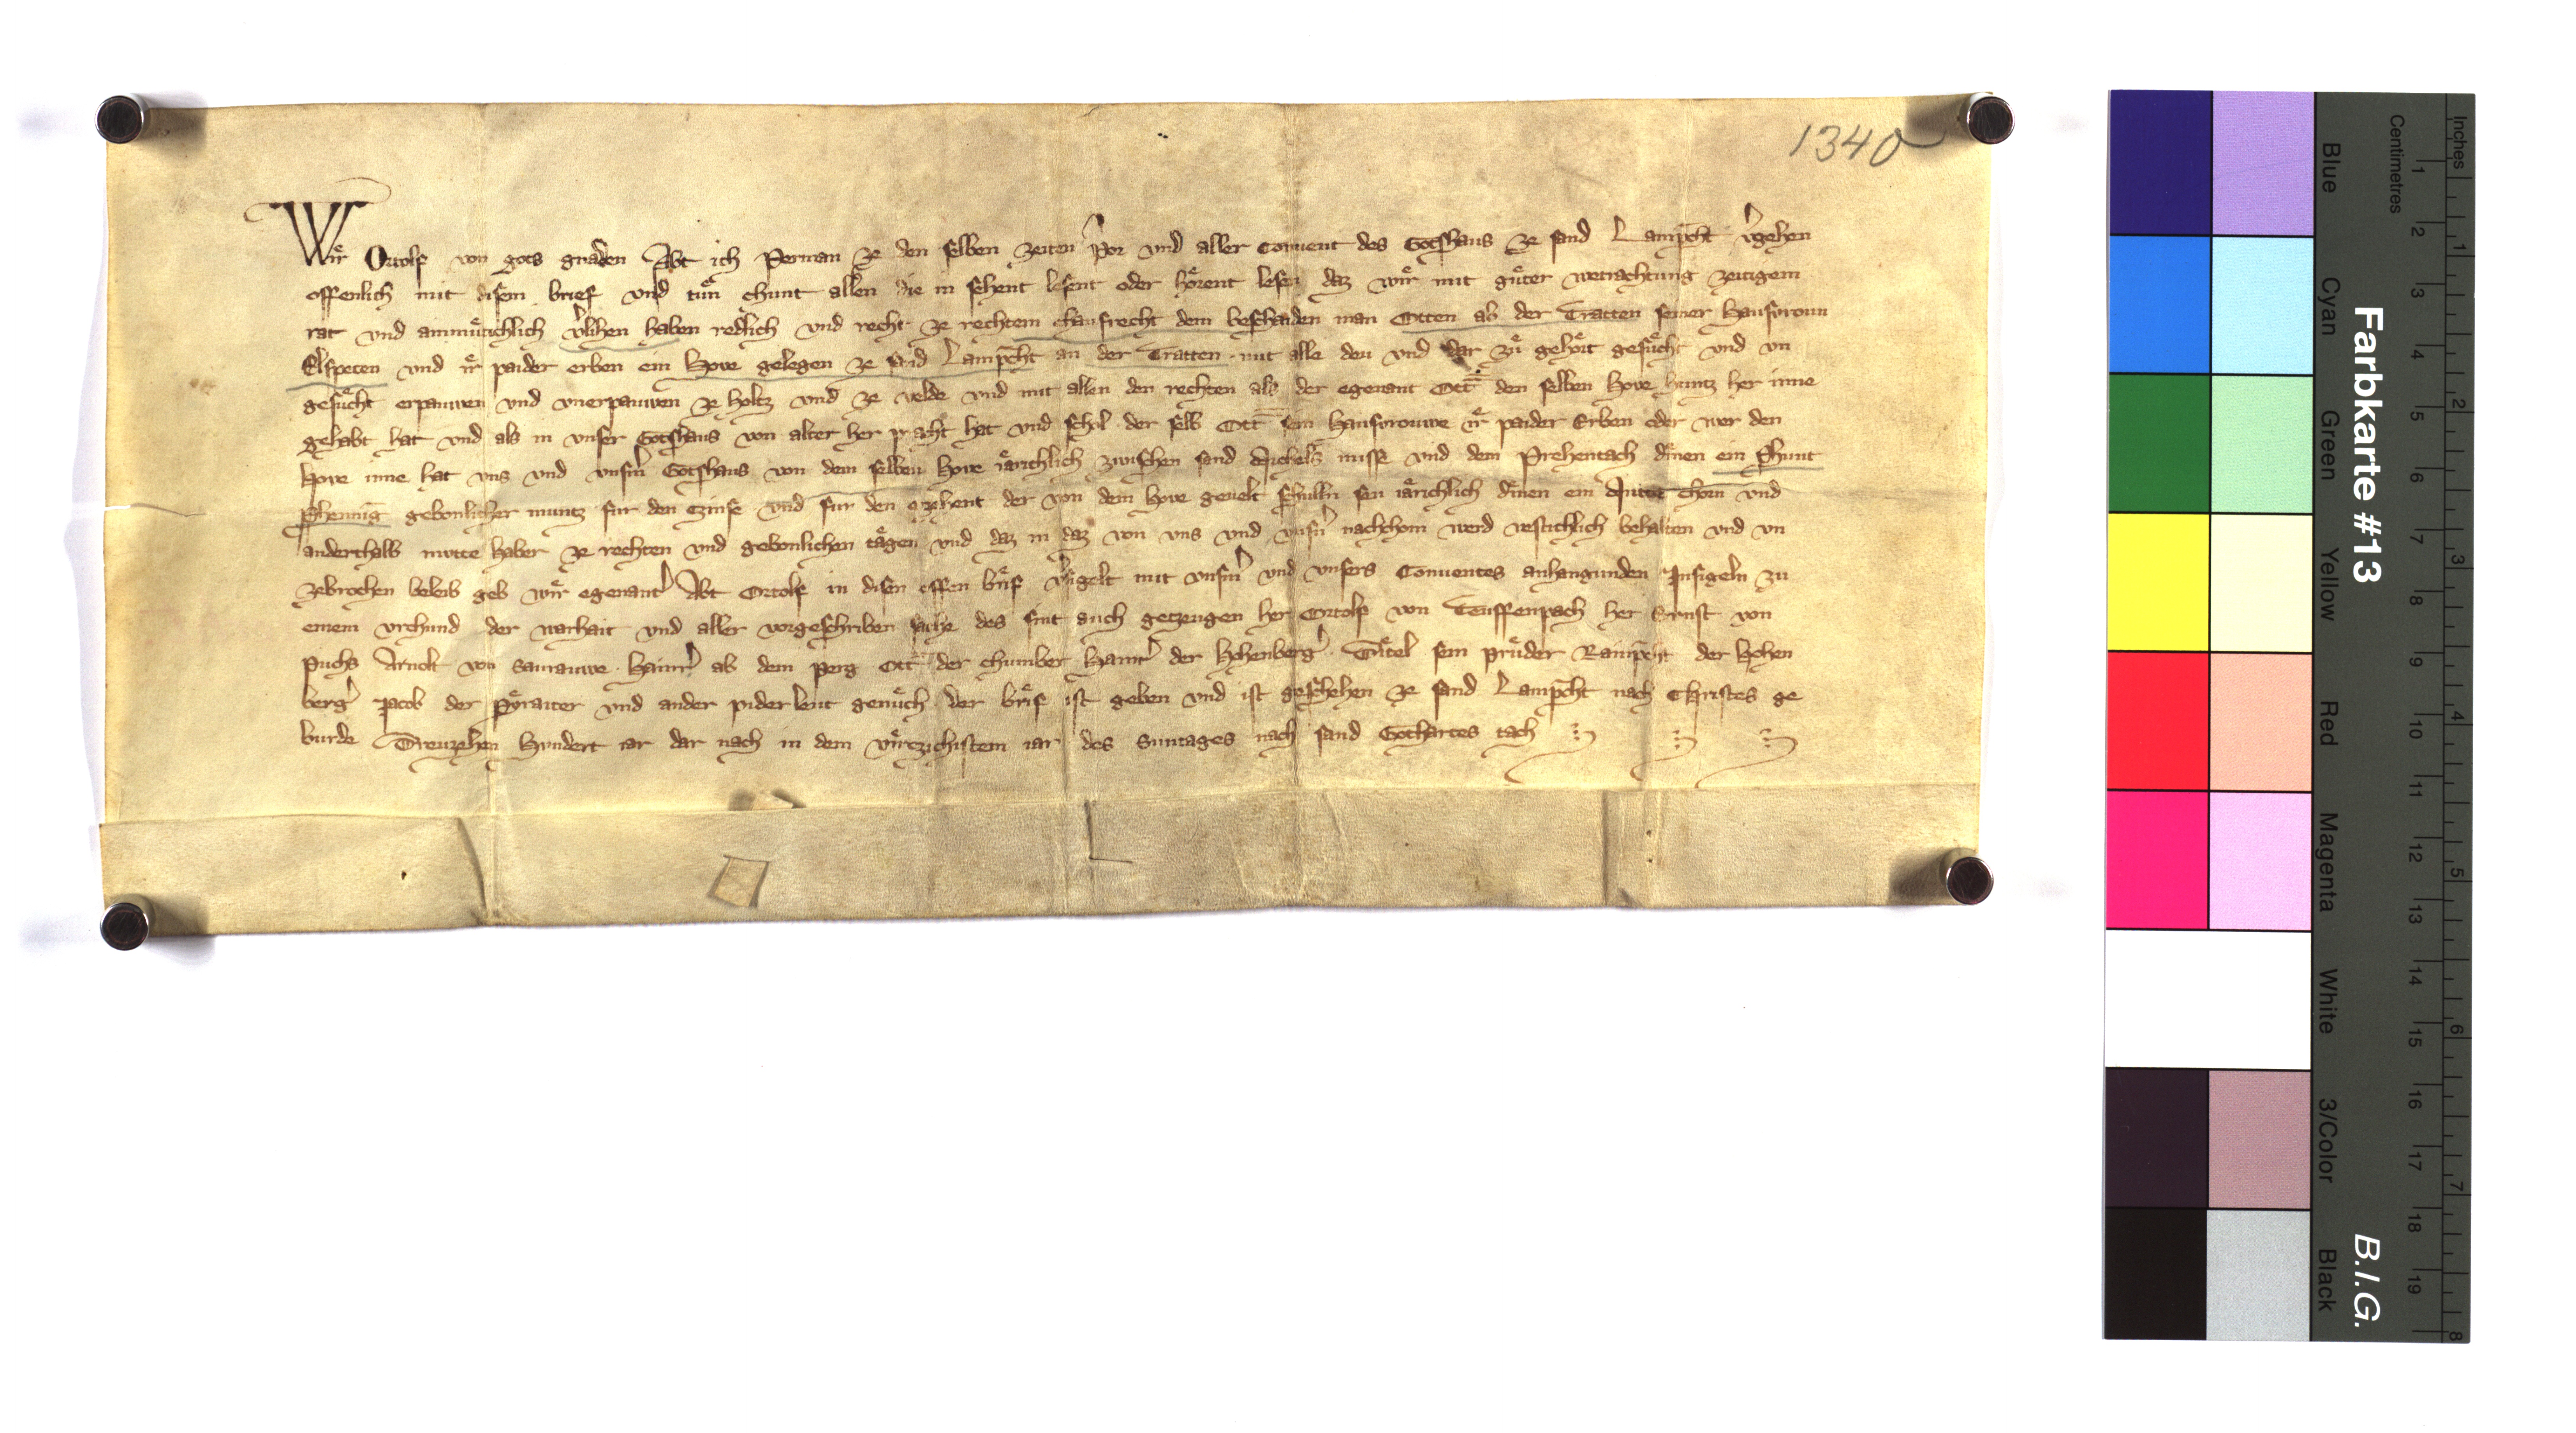 1340
Wir Ortolf von gots gnaden Abt ich Perman ze den selben zeiten p̓or vnd aller Conuent des Gotshaus ze sand Lamp̄cht v̓gehen
offenlich mit disem brief vnd tuͤn chunt allen die in sehent lesent oder hoͤrent lesen daz wir mit guͤter wetrachtung zeitigem
rat vnd ainmuͤtichlich v̓lihen haben redlich vnd recht ze rechtem chaufrecht dem beschaiden man Otten ab der Tratten seiner Hausvroun
Elspeten vnd ir paider erben ein Hove gelegen ze sand Lamp̄cht an der Tratten mit alle deu vnd dar zuͤ gehoͤrt gesuͤcht vnd vn
gesuͤcht erpauwen vnd vnerpauwen ze holtz vnd ze velde vnd mit allen den rechten als der egenant Ott den selben Hove huntz her inne
gehabt hat vnd als in vnser Gotshaus von alter her pracht hat vnd schol der selb Ott sein Hausvrouwe ir paider Erben oder wer den
Hove inne hat vns vnd vnsm̓ Gotshaus von dem selben Hove iaͤrichlich zwischen sand Michels misse vnd dem Prehentach dinen ein Phunt
Phennig gebonlicher muntz fur den czinse vnd fur den czehent der von dem Hove geuelt schulln seu iaͤrichlich dinen ein Mutte chorn vnd
anderthalb mutte haber ze rechten vnd gebonlichen taͤgen vnd daz in daz von vns vnd vnsn̓ nachchom werd vestichlich behalten vnd vn
zebrochen beleib geb wir egenant̓ Abt Ortolf in disen offen brief v̓sigelt mit vnsm̓ vnd vnsers Conuentes anhangunden Insigeln zu
einem vrchund der warhait vnd aller vorgeschriben sache des sint auch getzeugen her Ortolf von Teuffenpach her Ernst von
Puchs Arnolt von Saurauwe Hainr̓ ab dem perg Ott der chumber Hainr̓ der Hohenberg̓ Tuͤtel sein pruͤder Rainp̄cht der Hohen
berg̓ Jacob der ander piderleut genuͤch der brief ist geben vnd ist geschehen ze sand Lamp̄cht nach Christes ge
burde Dreuzehen Hundert iar dar nach in dem virczichistem iar des Suntages nach sand Gothartes tach
Farbkarte #13
B.I.G.
Centimetres
Inches
Blue
Cyan
Green
Yellow
Red
Magenta
White
3/Color
Black
1 2 3 4 5 6 7 8 9 10 11 12 13 14 15 16 17 18 19
1 2 3 4 5 6 7 8